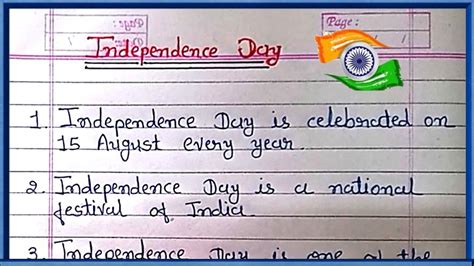 Page:
Independence Day
1. Independence Day is celebrated on
15 August every year.
2. Independence Day is a national
festival of India.
3. Independence Day is one of the